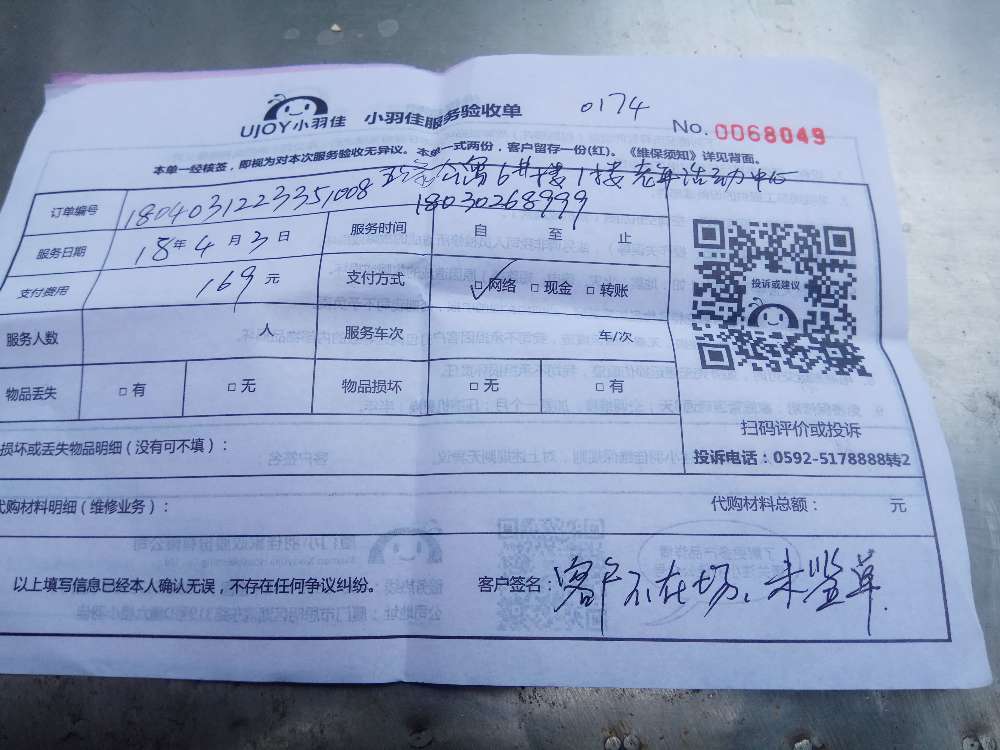 UJOY小羽佳 小羽佳服务验收单 0174 No. 0068049
本单一经核签，即视为对本次服务验收无异议。本单一式两份，客户留存一份(红)。《维保须知》详见背面。
公寓6井楼1楼老年活动中心
订单编号 1804031223351008 18030268999
服务日期 18年4月3日 服务时间 自 至 止
支付费用 169元 支付方式 ☑网络 □现金 □转账
投诉或建议
服务人数 人 服务车次 车/次
物品丢失 □有 □无 物品损坏 □无 □有
扫码评价或投诉
损坏或丢失物品明细（没有可不填）：
投诉电话：0592-5178888转2
代购材料明细（维修业务）： 代购材料总额： 元
以上填写信息已经本人确认无误，不存在任何争议纠纷。 客户签名：客户不在场、未签单